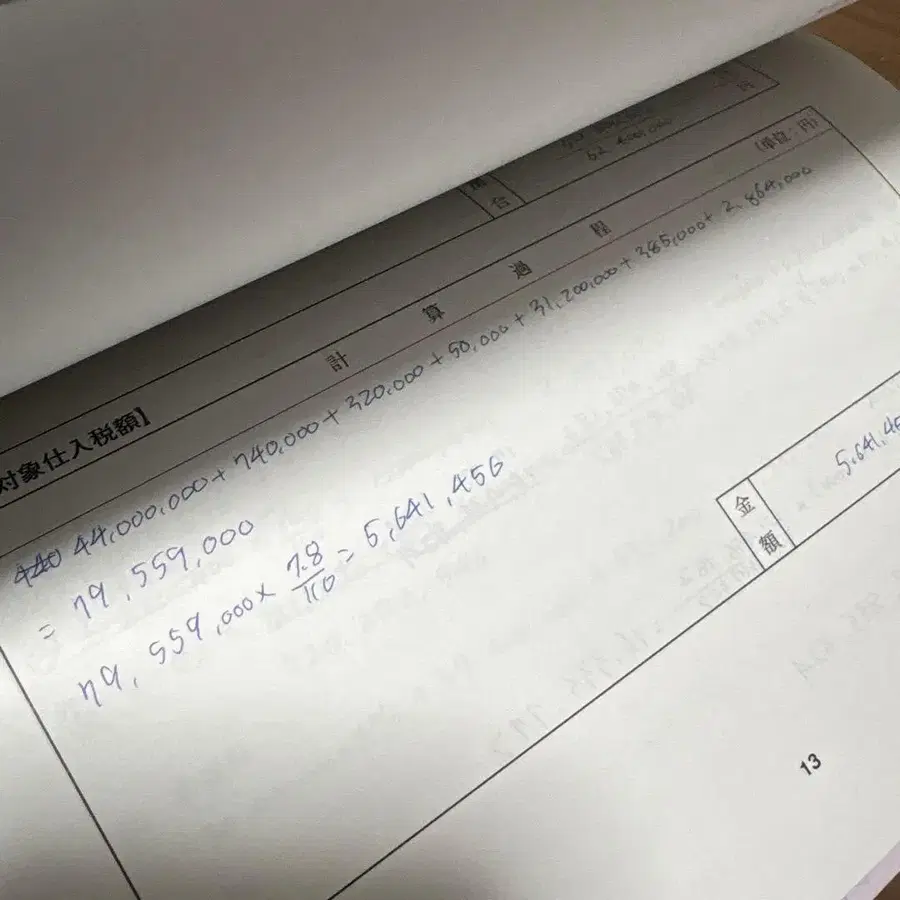 合
62,400,000
(単位:円)
計算過程
対象仕入税額】
440 44,000,000+740,000+320,000+50,000+31,200,000+385,000+2,864,000
= 79,559,000
79,559,000× 7.8/110 = 5,641,456
金額
5,641,45
13